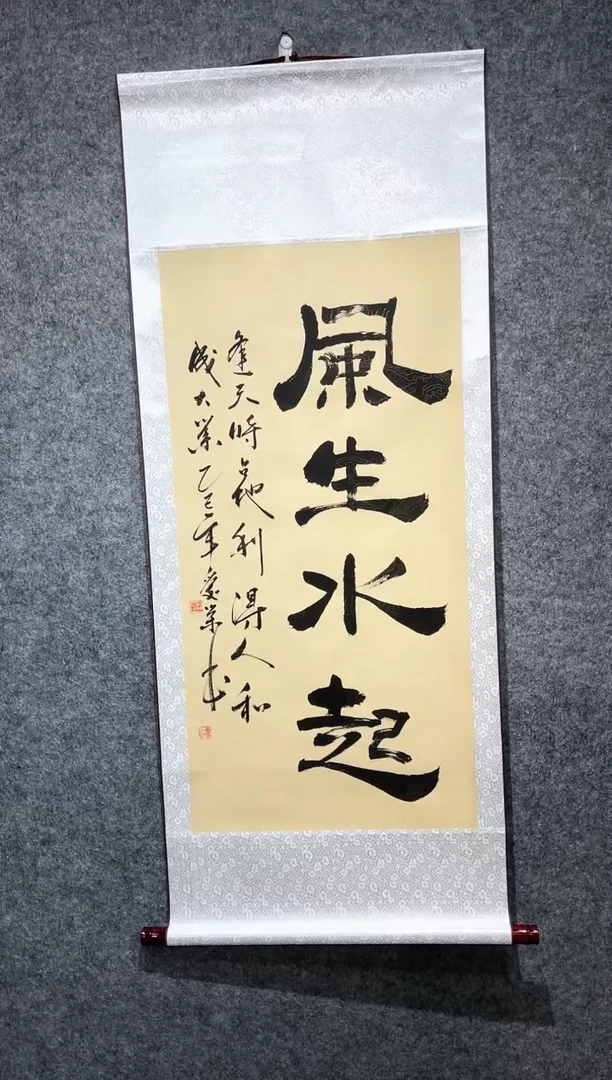 風生水起
逢天時占地利得人和
成大業乙巳年愛榮书